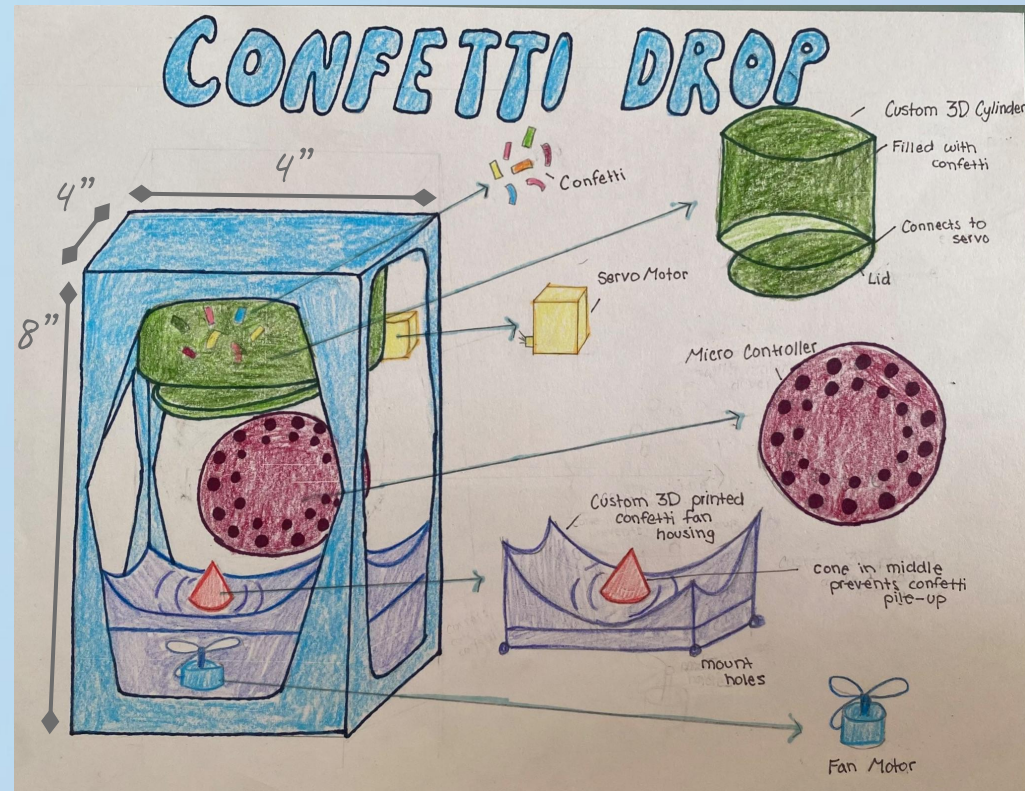 CONFETTI DROP
4”
4”
8”
Confetti
Custom 3D Cylinder
Filled with
confetti
Connects to
servo
Lid
Servo Motor
Micro Controller
Custom 3D printed
confetti fan
housing
cone in middle
prevents confetti
pile-up
mount
holes
Fan Motor